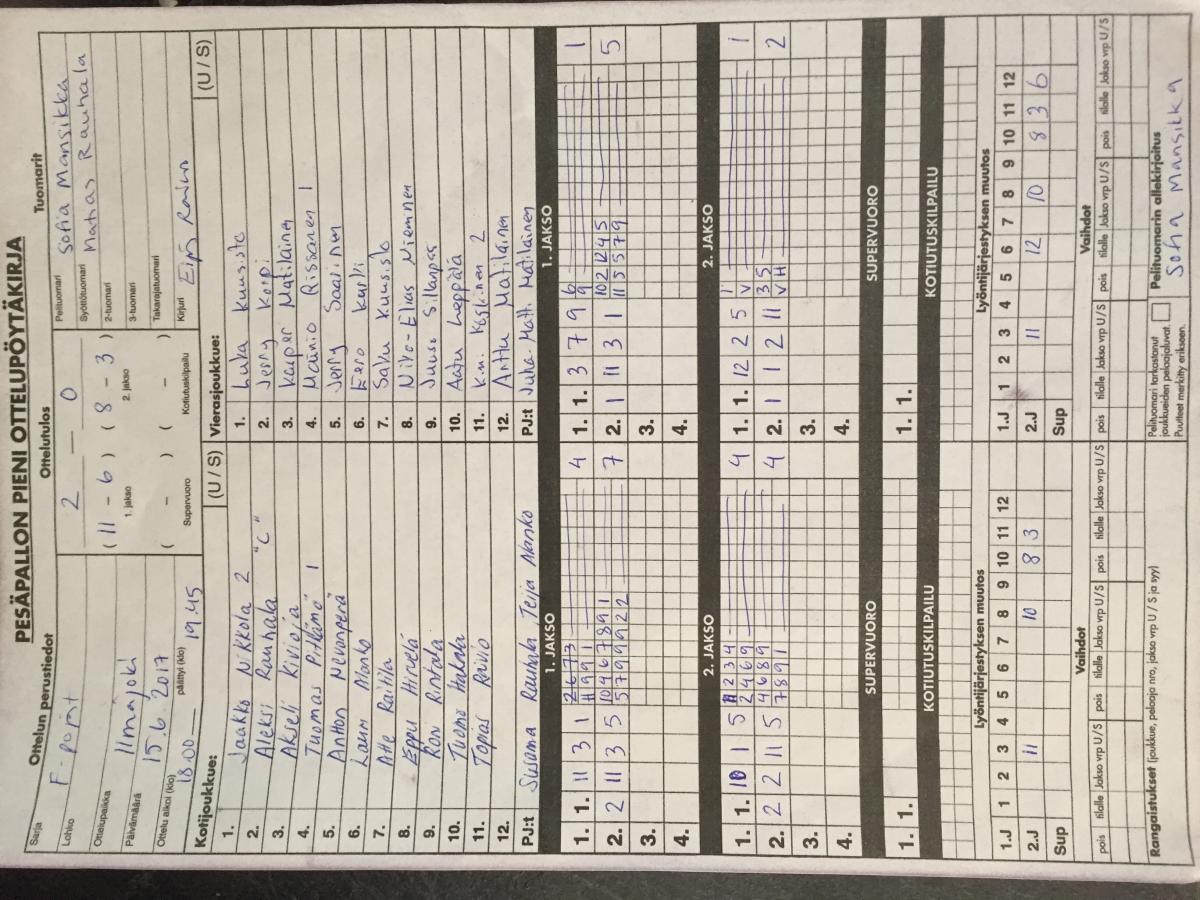 PESÄPALLON PIENI OTTELUPÖYTÄKIRJA
Ottelun perustiedot
Ottelutulos
Tuomarit
Sarja
Lohko F-pojat
Ottelupaikka Ilmajoki
Päivämäärä 15.6.2017
Ottelu alkoi (klo) 18.00 päättyi (klo) 19.45
2 — 0
( 11 - 6 ) ( 8 - 3 )
1. jakso 2. jakso
( - ) ( - )
Supervuoro Kotiutuskilpailu
Pelituomari Sofia Mansikka
Syöttötuomari Matias Rauhala
2-tuomari
3-tuomari
Takarajatuomari
Kirjuri
Kotijoukkue: (U / S)
1. Jaakko Nikkola 2
2. Aleksi Rauhala "C"
3. Akseli Kivioja
4. Tuomas Pitkämö 1
5. Antton Nevanperä
6. Lauri Nanko
7. Atte Raitila
8. Eppu Hirvelä
9. Roni Rintala
10. Tuomo Hakala
11. Topias Roivio
12.
PJ:t Susanna Rauhala, Teija Nanko
Vierasjoukkue: (U / S)
1. Luka Kuusisto
2. Jerry Korpi
3. Kasper Matilainen
4. Mainio Rissanen 1
5. Jerry Saarinen
6. Eero
7. Saku Kuusisto
8. Niko-Elias Nieminen
9. Juuso Sillanpää
10. Aatu Leppälä
11. K.m. Koskinen 2
12. Anttu Matilainen
PJ:t Juha-Matti Matilainen
1. JAKSO
1. 1. 11 3 1 4
2. 2 11 3 5 7
3.
4.
1. JAKSO
1. 1. 3 7 9 1
2. 1 11 3 1 5
3.
4.
2. JAKSO
1. 1. 10 1 5 4
2. 2 2 11 5 4
3.
4.
2. JAKSO
1. 1. 12 2 5 1
2. 1 1 2 11 2
3.
4.
SUPERVUORO
1. 1.
SUPERVUORO
1. 1.
KOTIUTUSKILPAILU
KOTIUTUSKILPAILU
Lyöntijärjestyksen muutos
1.J 1 2 3 4 5 6 7 8 9 10 11 12
2.J 11 10 8 3
Sup
Lyöntijärjestyksen muutos
1.J 1 2 3 4 5 6 7 8 9 10 11 12
2.J 11 12 10 8 3 6
Sup
Vaihdot
pois tilalle Jakso vrp U/S pois tilalle Jakso vrp U/S pois tilalle Jakso vrp U/S
Vaihdot
pois tilalle Jakso vrp U/S pois tilalle Jakso vrp U/S pois tilalle Jakso vrp U/S
Rangaistukset (joukkue, pelaaja nro, jakso vrp U / S ja syy)
Pelituomari tarkastanut
joukkueiden pelaajaluvat.
Puutteet merkitty erikseen.
Pelituomarin allekirjoitus
Sofia Mansikka